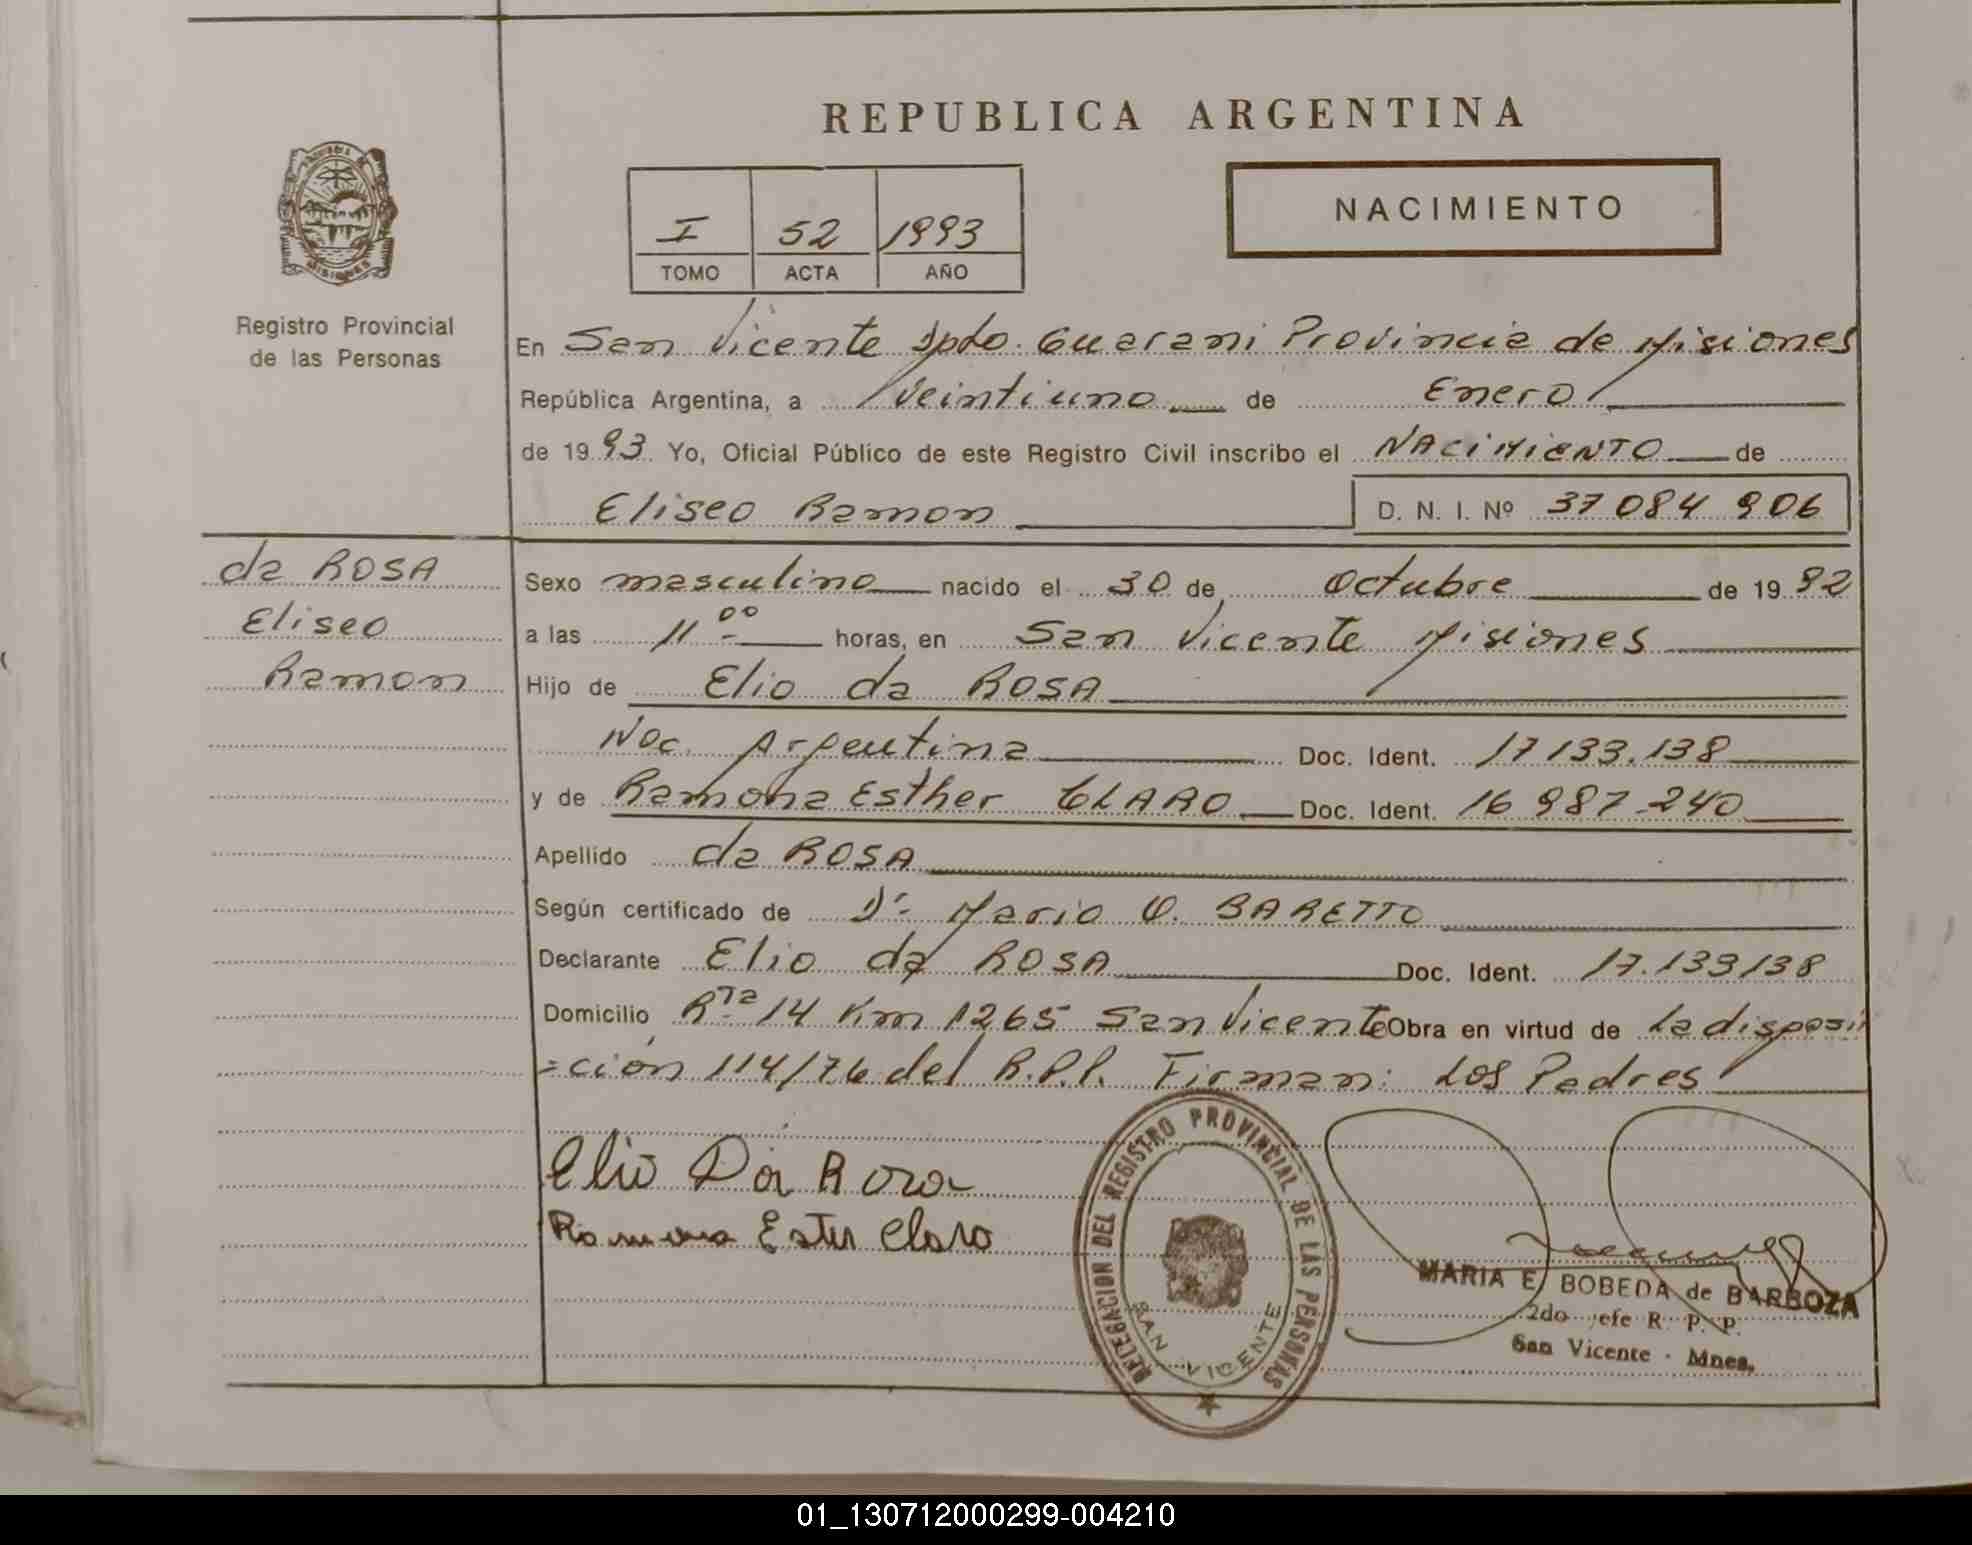 REPUBLICA ARGENTINA
PROVINCIA DE
MISIONES
I 52 1993
TOMO ACTA AÑO
NACIMIENTO
Registro Provincial
de las Personas
En San Vicente Dpto. Guarani Provincia de Misiones
República Argentina, a Veintiuno de Enero
de 1993 Yo, Oficial Público de este Registro Civil inscribo el NACIMIENTO de
Eliseo Ramon D. N. I. Nº 37 084 906
da ROSA
Eliseo
Ramon
Sexo masculino nacido el 30 de Octubre de 1992
a las 11 00 horas, en San Vicente Misiones
Hijo de Elio da ROSA
Nac. Argentina Doc. Ident. 17 133.138
y de Ramona Esther CLARO Doc. Ident. 16 987.240
Apellido da ROSA
Según certificado de Dr. Mario O. BARETTO
Declarante Elio da ROSA Doc. Ident. 17.133138
Domicilio Rta 14 Km 1265 San Vicente Obra en virtud de La disposi
=ción 114/76 del R.P.P. Firman: Los Padres
Elio Da Rosa
Ramona Ester Claro
DELEGACION DEL REGISTRO PROVINCIAL DE LAS PERSONAS
SAN VICENTE
MARIA E. BOBEDA de BARBOZA
2do jefe R. P. P.
San Vicente - Mnes.
01_130712000299-004210